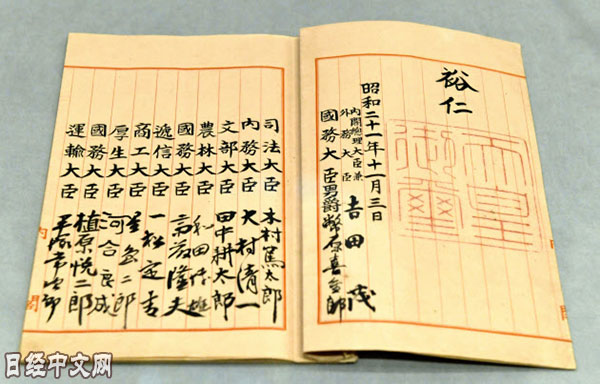 裕仁
天皇御璽
昭和二十一年十一月三日
内閣總理大臣兼
外務大臣 吉田茂
國務大臣 男爵 幣原喜重郎
司法大臣 木村篤太郎
内務大臣 大村清一
文部大臣 田中耕太郎
農林大臣 和田博雄
國務大臣 斎藤隆夫
遞信大臣 一松定吉
商工大臣 星島二郎
厚生大臣 河合良成
國務大臣 植原悦二郎
運輸大臣 平塚常次郎
内閣
日经中文网